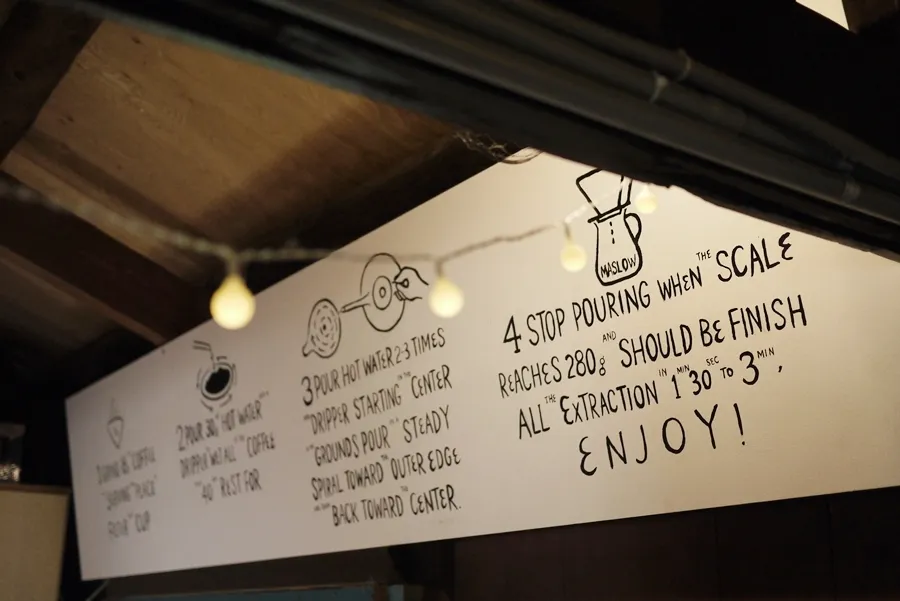 COFFEE
CUP
2 POUR 30g HOT WATER
DRIPPER WET ALL THE COFFEE
40 REST FOR
3 POUR HOT WATER 2-3 TIMES
DRIPPER STARTING IN THE CENTER
GROUNDS POUR STEADY
SPIRAL TOWARD THE OUTER EDGE
BACK TOWARD THE CENTER.
MASLOW
4 STOP POURING WHEN THE SCALE
REACHES 280g AND SHOULD BE FINISH
ALL THE EXTRACTION IN 1 MIN 30 SEC TO 3 MIN,
ENJOY!